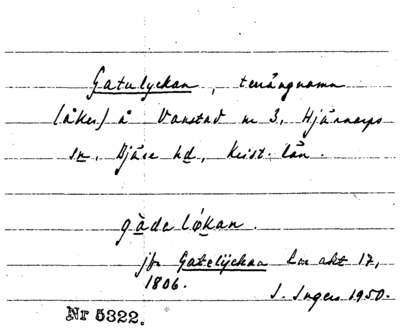 Gatulyckan, terrängnamn
(åker) å Vanstad nr 3, Hjärnarps
sn, Bjäre hd, Krist. län.
gàdeløkan.
jfr Gatelyckan Lm akt 17,
1806.
S. Ingers 1950.
Nr 5322.